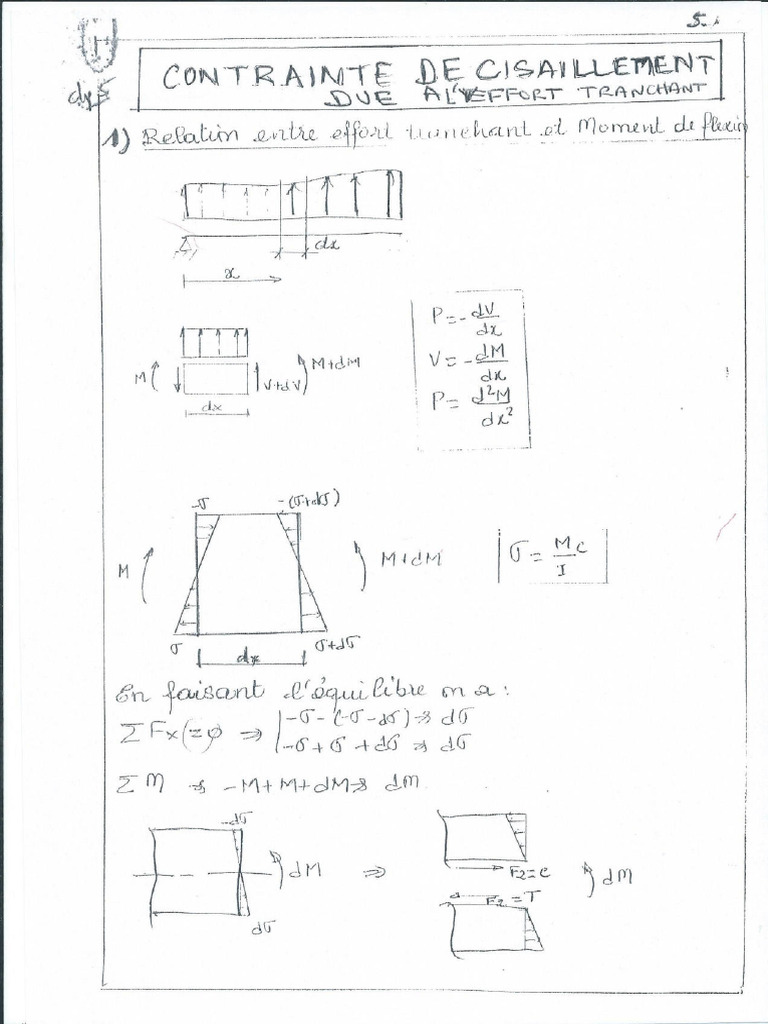 5.
H
CONTRAINTE DE CISAILLEMENT
DUE À L'EFFORT TRANCHANT
1) Relation entre effort tranchant et Moment de flexion
dx
x
P = - dV/dx
V = - dM/dx
P = d²M/dx²
M
V+dV
M+dM
dx
-σ
-(σ+dσ)
M
M+dM
σ = Mc/I
σ
σ+dσ
dx
En faisant l'équilibre on a :
ΣFx(=φ ⇒ |-σ-(-σ-dσ) ⇒ dσ
-σ+σ+dσ ⇒ dσ
ΣM ⇒ -M+M+dM ⇒ dM
-dσ
dM
⇒
F2=C
dM
F2=T
dσ